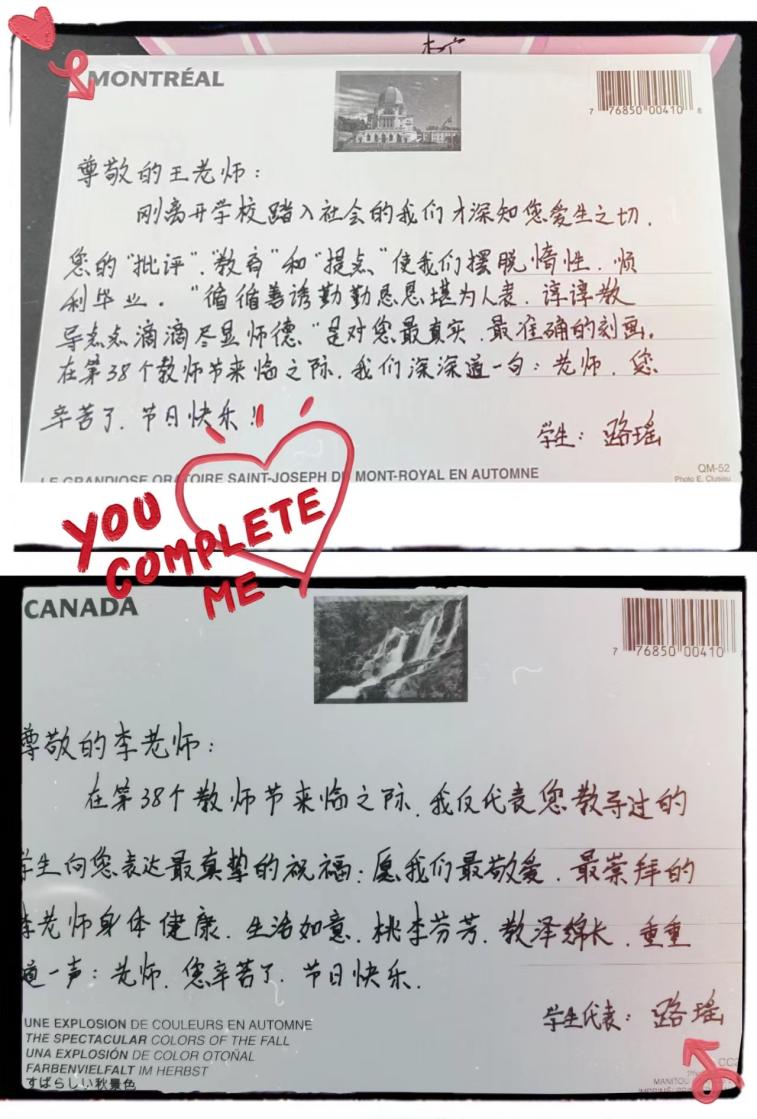 MONTRÉAL
7 76850 00410 8
尊敬的王老师：
刚离开学校踏入社会的我们才深知您爱生之切，
您的“批评”、“教育”和“提点”使我们摆脱惰性，顺
利毕业。“循循善诱勤勤恳恳堪为人表，谆谆教
导点点滴滴尽显师德”是对您最真实、最准确的刻画。
在第38个教师节来临之际，我们深深道一句：老师，您
辛苦了，节日快乐！
学生：路瑶
LE GRANDIOSE ORATOIRE SAINT-JOSEPH DU MONT-ROYAL EN AUTOMNE
QM-52
Photo E. Clusiau
YOU
COMPLETE
ME
CANADA
7 76850 00410
尊敬的李老师：
在第38个教师节来临之际，我仅代表您教导过的
学生向您表达最真挚的祝福：愿我们最敬爱、最崇拜的
李老师身体健康，生活如意，桃李芬芳，教泽绵长，重重
道一声：老师，您辛苦了，节日快乐。
学生代表：路瑶
UNE EXPLOSION DE COULEURS EN AUTOMNE
THE SPECTACULAR COLORS OF THE FALL
UNA EXPLOSIÓN DE COLOR OTOÑAL
FARBENVIELFALT IM HERBST
すばらしい秋景色
MANITOU